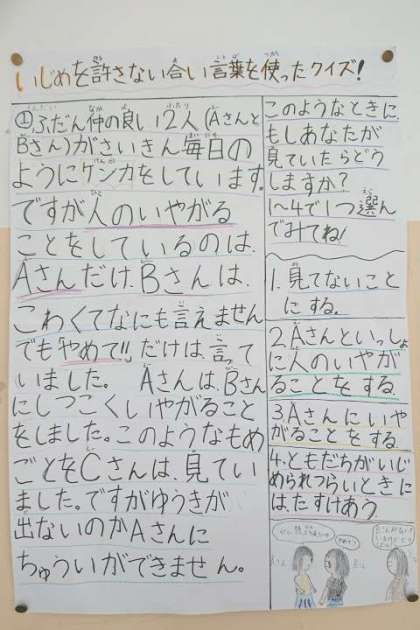 いじめを許さない合い言葉を使ったクイズ!
①ふだん仲の良い2人(Aさんと
Bさん)がさいきん毎日の
ようにケンカをしています。
ですが人のいやがる
ことをしているのは、
Aさんだけ、Bさんは、
こわくてなにも言えません
でも「やめて!!」だけは、言って
いました。 Aさんは、Bさん
にしつこくいやがること
をしました。このようなもめ
ごとをCさんは、見てい
ました。ですがゆうきが
出ないのかAさんに
ちゅういができません。
このようなときに
もしあなたが
見ていたらどう
しますか?
1〜4で1つ選ん
でみてね!
1.見てないこと
にする。
2.Aさんといっしょ
に人のいやが
ることをする
3.Aさんにいや
がることをする
4.ともだちがいじ
められつらいときに
は、たすけあう